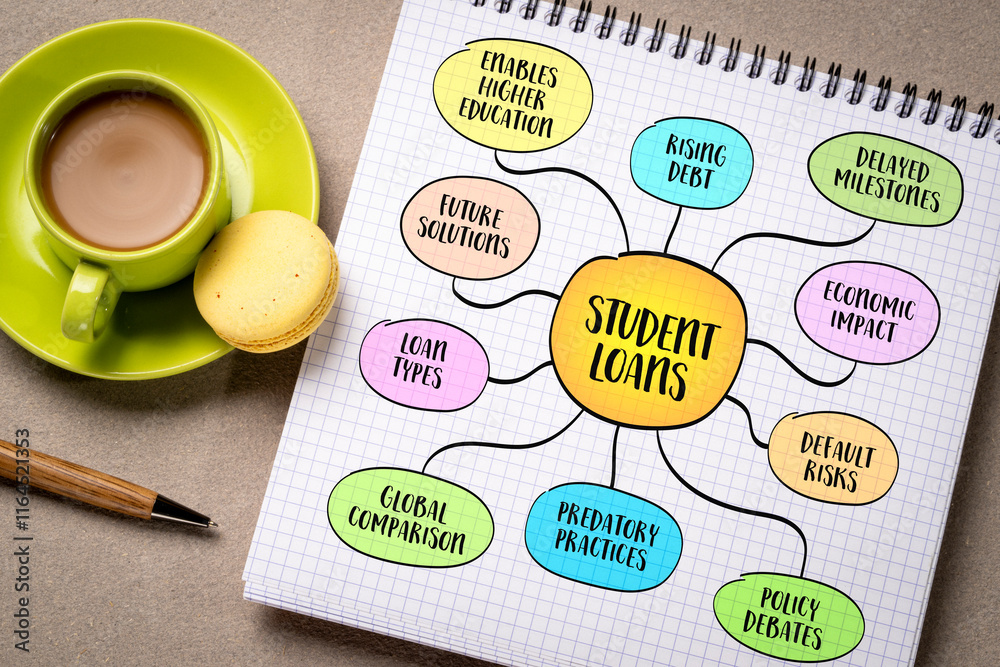 ENABLES
HIGHER
EDUCATION
RISING
DEBT
DELAYED
MILESTONES
FUTURE
SOLUTIONS
ECONOMIC
IMPACT
STUDENT
LOANS
LOAN
TYPES
DEFAULT
RISKS
GLOBAL
COMPARISON
PREDATORY
PRACTICES
POLICY
DEBATES
Adobe Stock | #1164521353